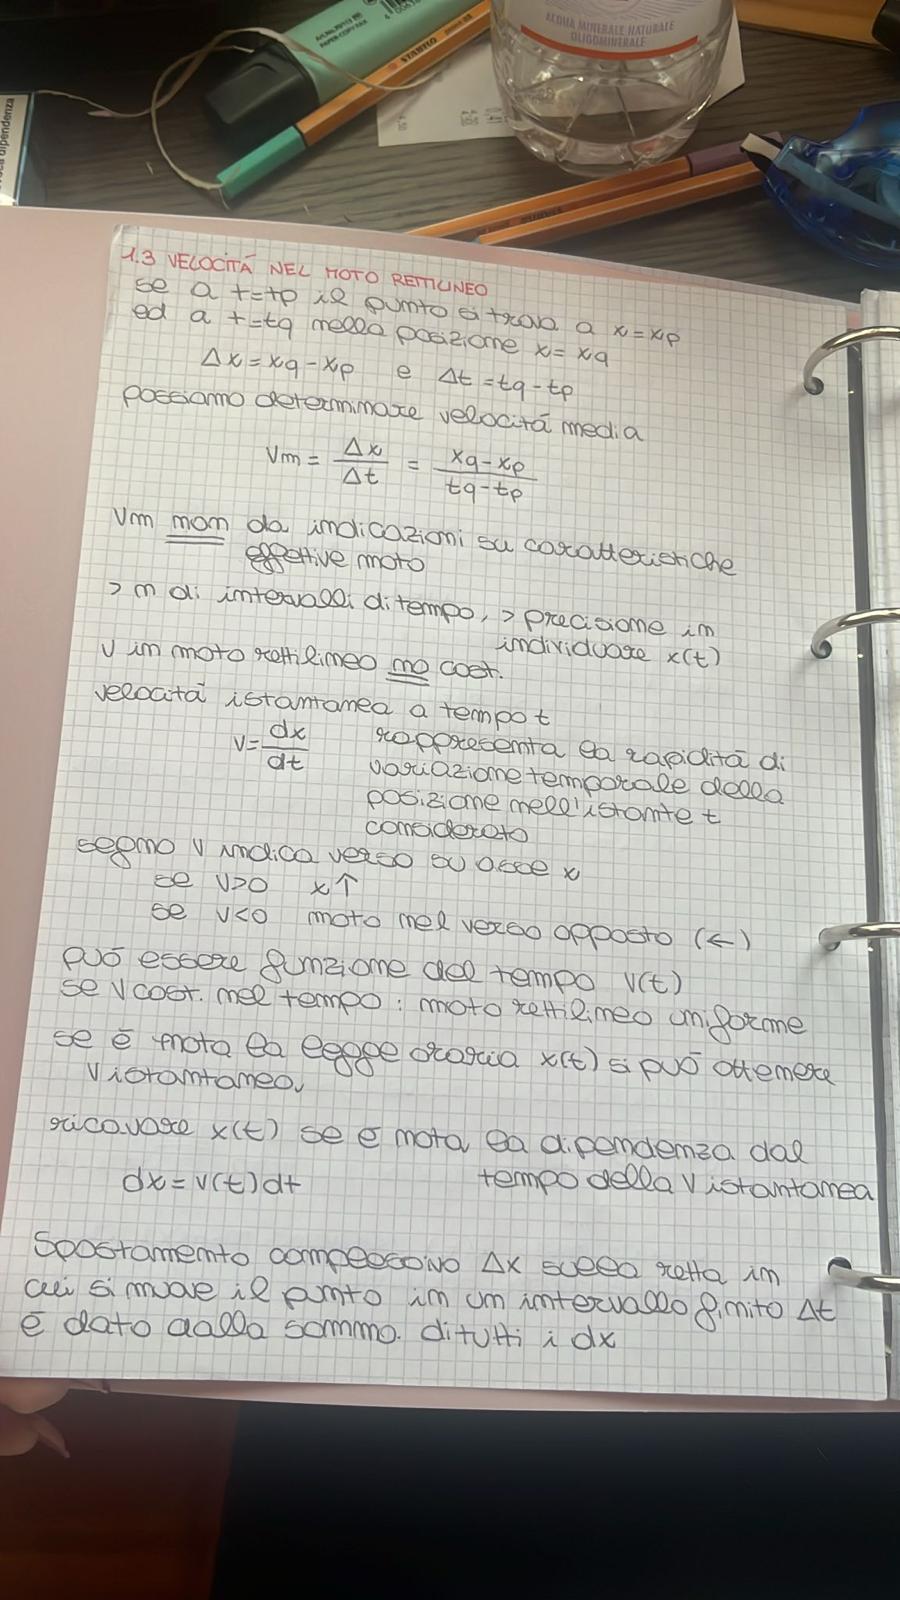 ACQUA MINERALE NATURALE
OLIGOMINERALE
STABILO
dipendenza
1.3 VELOCITÁ NEL MOTO RETTILINEO
se a t=tp il punto si trova a x=xp
ed a t=tq nella posizione x=xq
Δx=xq-xp e Δt=tq-tp
possiamo determinare velocitá media
Vm = Δx/Δt = xq-xp/tq-tp
Vm non da indicazioni su caratteristiche
effettive moto
> n di intervalli di tempo, > precisione in
individuare x(t)
V in moto rettilineo no cost.
velocitá istantanea a tempo t
V=dx/dt rappresenta la rapiditá di
variazione temporale della
posizione nell'istante t
considerato
segno V indica verso su asse x
se V>0 x↑
se V<0 moto nel verso opposto (←)
puó essere funzione del tempo V(t)
se V cost. nel tempo: moto rettilineo uniforme
se é nota la legge oraria x(t) si puó ottenere
V istantanea
ricavare x(t) se é nota la dipendenza dal
dx=v(t)dt tempo della V istantanea
Spostamento complessivo Δx sulla retta in
cui si muove il punto in un intervallo finito Δt
é dato dalla somma di tutti i dx